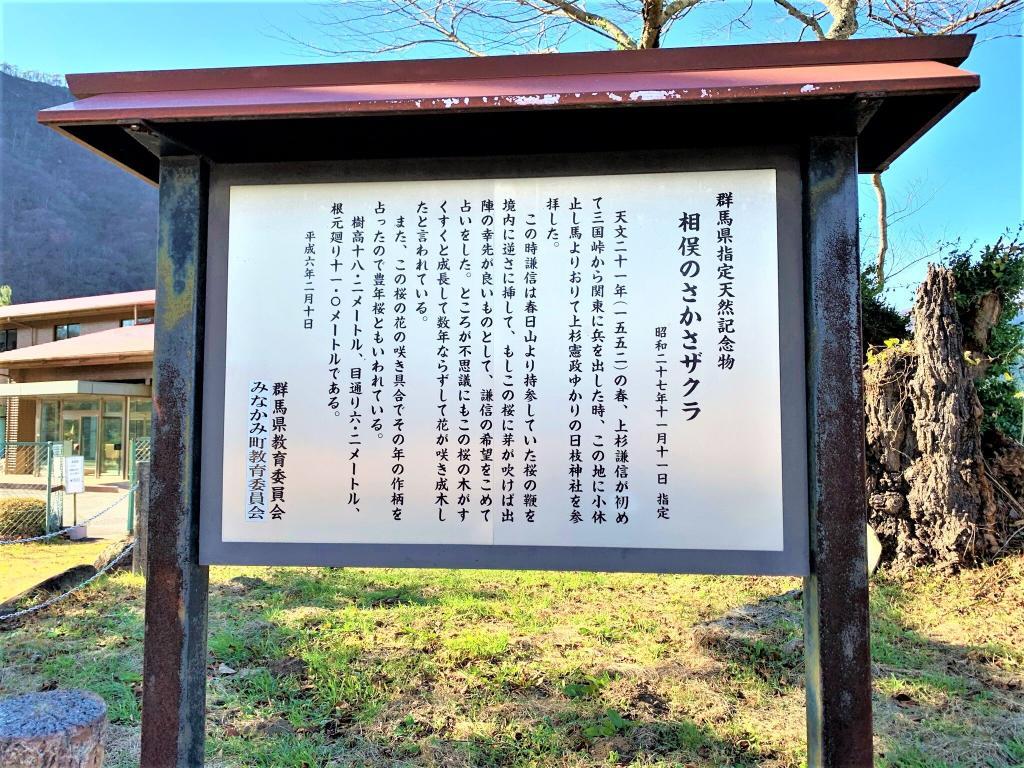 群馬県指定天然記念物
相俣のさかさザクラ
昭和二十七年十一月十一日 指定
天文二十一年(一五五二)の春、上杉謙信が初め
て三国峠から関東に兵を出した時、この地に小休
止し馬よりおりて上杉憲政ゆかりの日枝神社を参
拝した。
この時謙信は春日山より持参していた桜の鞭を
境内に逆さに挿して、もしこの桜に芽が吹けば出
陣の幸先が良いものとして、謙信の希望をこめて
占いをした。ところが不思議にもこの桜の木がす
くすくと成長して数年ならずして花が咲き成木し
たと言われている。
また、この桜の花の咲き具合でその年の作柄を
占ったので豊年桜ともいわれている。
樹高十八・二メートル、目通り六・二メートル、
根元廻り十一・〇メートルである。
平成六年二月十日
群馬県教育委員会
みなかみ町教育委員会